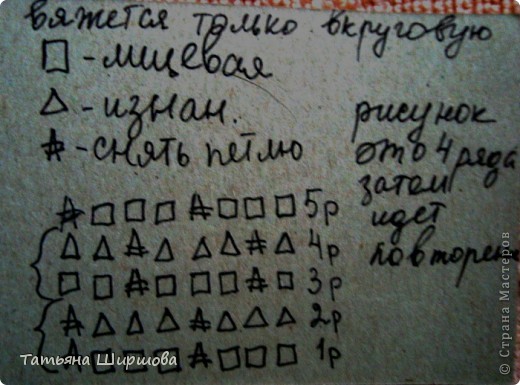 вяжется только вкруговую
□ - лицевая
△ - изнан.
А - снять петлю
рисунок
это 4 ряда
затем
идет
повторен
А □ □ □ А □ □ □ 5р
△ △ А △ △ △ А △ 4р
□ □ А □ □ □ А □ 3р
А △ △ △ А △ △ △ 2р
А □ □ □ А □ □ □ 1р
Татьяна Ширшова
© Страна Мастеров